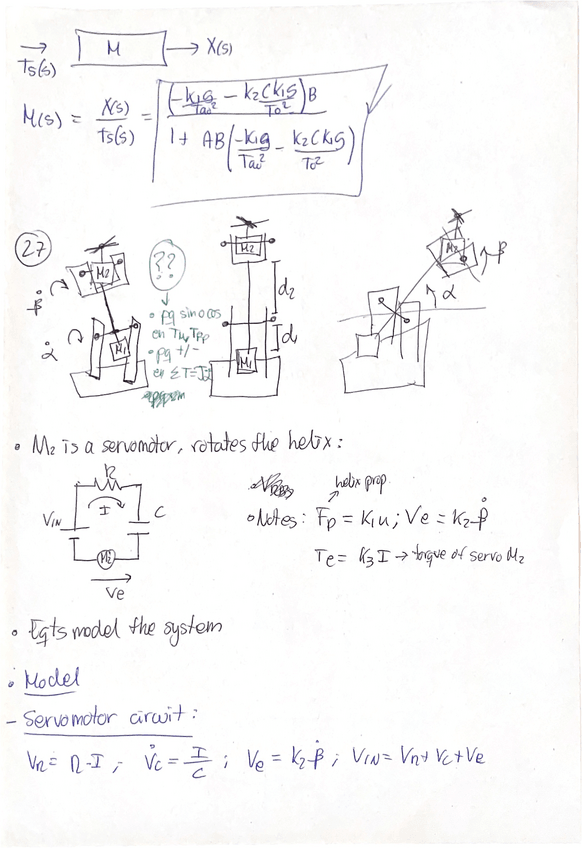 M → X(s)
Ts(s)
M(s) = X(s)/ts(s) = (-k1g/Tao² - k2Ck1g/To²)B / 1 + AB(-k1g/Tao² - k2Ck1g/To²)
27
M2
??
M2
M2
β
β̇
d2
α
α̇
• pq sin o cos
en Tu, Tpp
d1
M1
M1
• pq +/-
en ΣT=Jα̈
• M2 is a servomotor, rotates the helix:
R
VIN
I
C
M2
Ve
helix prop.
• Notes: Fp = K1u; Ve = k2·β̇
Te = K3 I → torque of servo M2
• Eqts model the system
• Model
- Servomotor circuit:
VR = R·I; V̇c = I/C; Ve = k2·β̇; VIN = VR + Vc + Ve